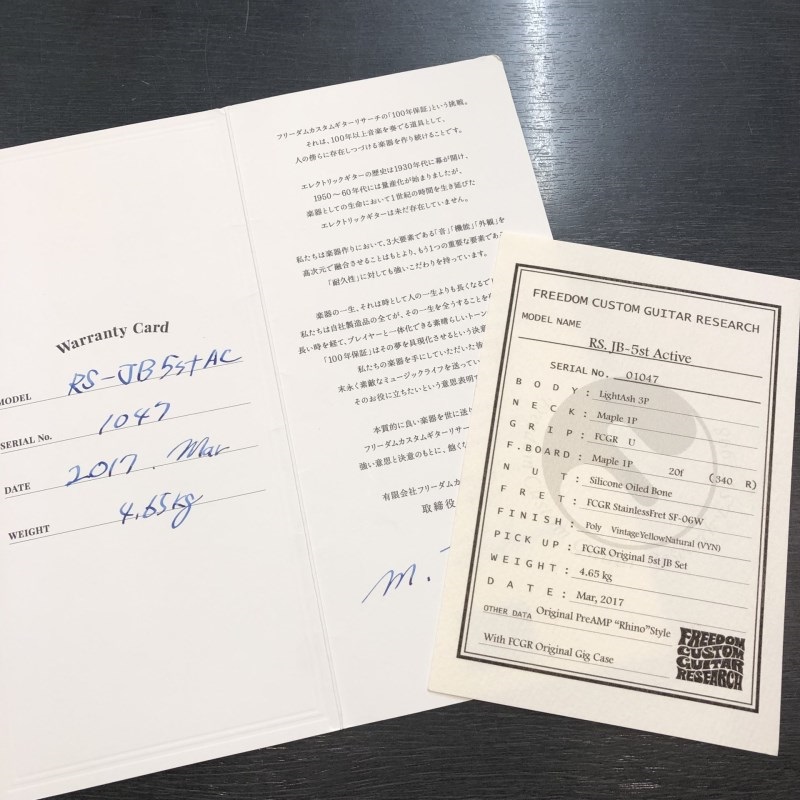 Warranty Card
MODEL RS-JB5stAC
SERIAL No. 1047
DATE 2017. Mar
WEIGHT 4.65kg
フリーダムカスタムギターリサーチの「100年保証」という挑戦。
それは、100年以上音楽を奏でる道具として、
人の傍らに存在しつづける楽器を作り続けることです。
エレクトリックギターの歴史は1930年代に幕が開け、
1950〜60年代には量産化が始まりましたが、
楽器としての生命において1世紀の時間を生き延びた
エレクトリックギターは未だ存在していません。
私たちは楽器作りにおいて、3大要素である「音」「機能」「外観」を
高次元で融合させることはもとより、もう1つの重要な要素である
「耐久性」に対しても強いこだわりを持っています。
楽器の一生、それは時として人の一生よりも長くなるで
私たちは自社製造品の全てが、その一生を全うすることを
長い時を経て、プレイヤーと一体化できる素晴らしいトーン
「100年保証」はその夢を具現化させるという決意
私たちの楽器を手にしていただいた皆
末永く素敵なミュージックライフを送ってい
そのお役に立ちたいという意思表明で
本質的に良い楽器を世に送り
フリーダムカスタムギターリサー
強い意思と決意のもとに、飽くな
有限会社フリーダムカ
取締役
M.
FREEDOM CUSTOM GUITAR RESEARCH
MODEL NAME
RS. JB-5st Active
SERIAL NO. 01047
BODY: LightAsh 3P
NECK: Maple 1P
GRIP: FCGR U
F.BOARD: Maple 1P 20f (340 R)
NUT: Silicone Oiled Bone
FRET: FCGR StainlessFret SF-06W
FINISH: Poly VintageYellowNatural (VYN)
PICK UP: FCGR Original 5st JB Set
WEIGHT: 4.65 kg
DATE: Mar, 2017
OTHER DATA Original PreAMP "Rhino"Style
With FCGR Original Gig Case
FREEDOM
CUSTOM
GUITAR
RESEARCH